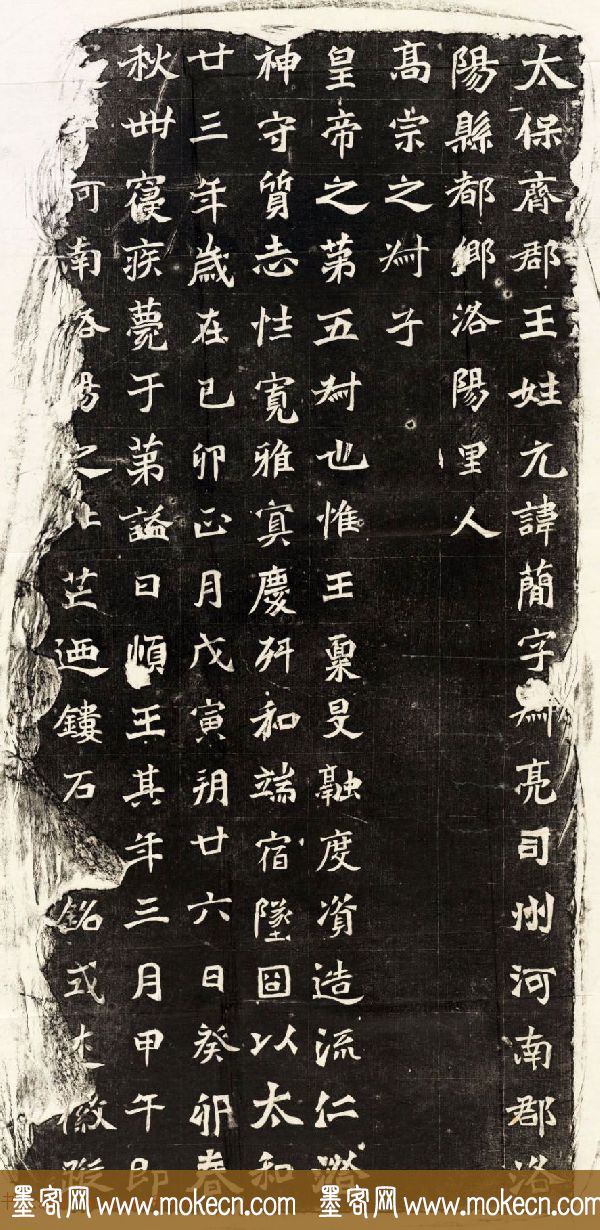 太保齊郡王姓元諱簡字叔亮司州河南郡洛
陽縣都鄉洛陽里人
高宗之叔子
皇帝之第五叔也惟王稟旻融度資造流仁澇
神守質志性寬雅寘慶弈和端宿墜固以太和
廿三年歲在己卯正月戊寅朔廿六日癸卯春
秋卌寑疾薨于第謚曰順王其年三月甲午即
河南洛陽之芷芒迺鏤石銘式述徽
墨客网 www.mokecn.com 墨客网 www.mokecn.com